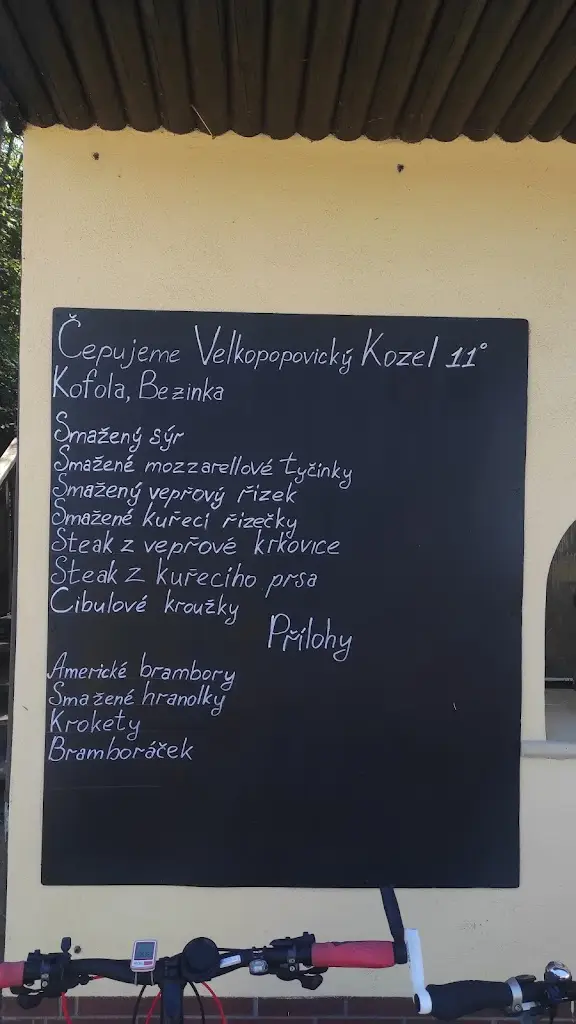 Čepujeme Velkopopovický Kozel 11°
Kofola, Bezinka
Smažený sýr
Smažené mozzarellové tyčinky
Smažený vepřový řízek
Smažené kuřecí řízečky
Steak z vepřové krkovice
Steak z kuřecího prsa
Cibulové kroužky
Přílohy
Americké brambory
Smažené hranolky
Krokety
Bramboráček